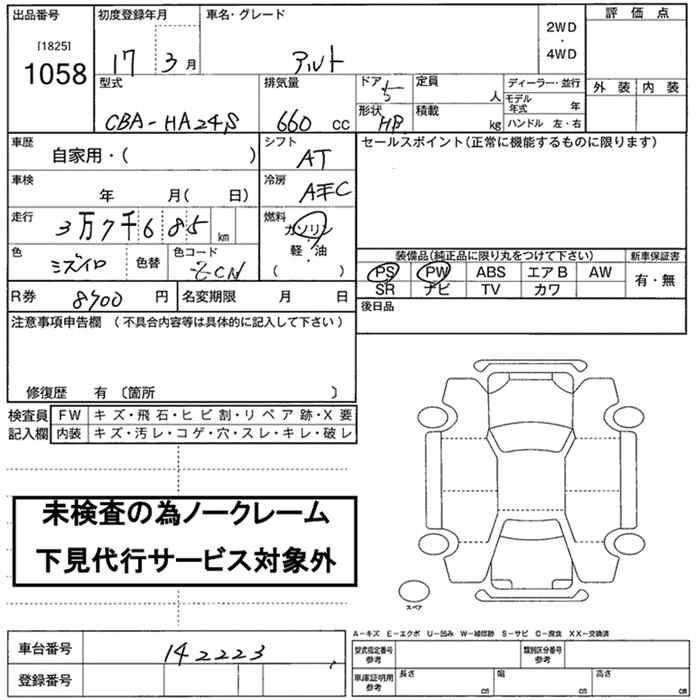 出品番号 初度登録年月 車名・グレード 評価点
[1825]
1058 17 3月 アルト 2WD・4WD
型式 排気量 ドア 5 定員 人 ディーラー・並行 外装 内装
CBA-HA24S 660 cc 形状 HB 積載 kg モデル年式 年
ハンドル 左・右
車歴 自家用・( ) シフト AT セールスポイント(正常に機能するものに限ります)
車検 年 月( 日) 冷房
走行 3万7千685 km 燃料 ガソリン
軽・油
( )
色 ミズイロ 色替 色コード ZCN 装備品(純正品に限り丸をつけて下さい) 新車保証書
PS PW ABS エアB AW 有・無
SR ナビ TV カワ
R券 8900 円 名変期限 月 日 後日品
注意事項申告欄 (不具合内容等は具体的に記入して下さい)
修復歴 有 〔箇所 〕
検査員 FW キズ・飛石・ヒビ割・リペア跡・X要
記入欄 内装 キズ・汚レ・コゲ・穴・スレ・キレ・破レ
未検査の為ノークレーム
下見代行サービス対象外
スペア
A-キズ E-エクボ U-凹み W-補修跡 S-サビ C-腐食 XX-交換済
車台番号 142223 型式指定番号 参考 類別区分番号 参考
登録番号 車庫証明用 参考 長さ cm 幅 cm 高さ cm